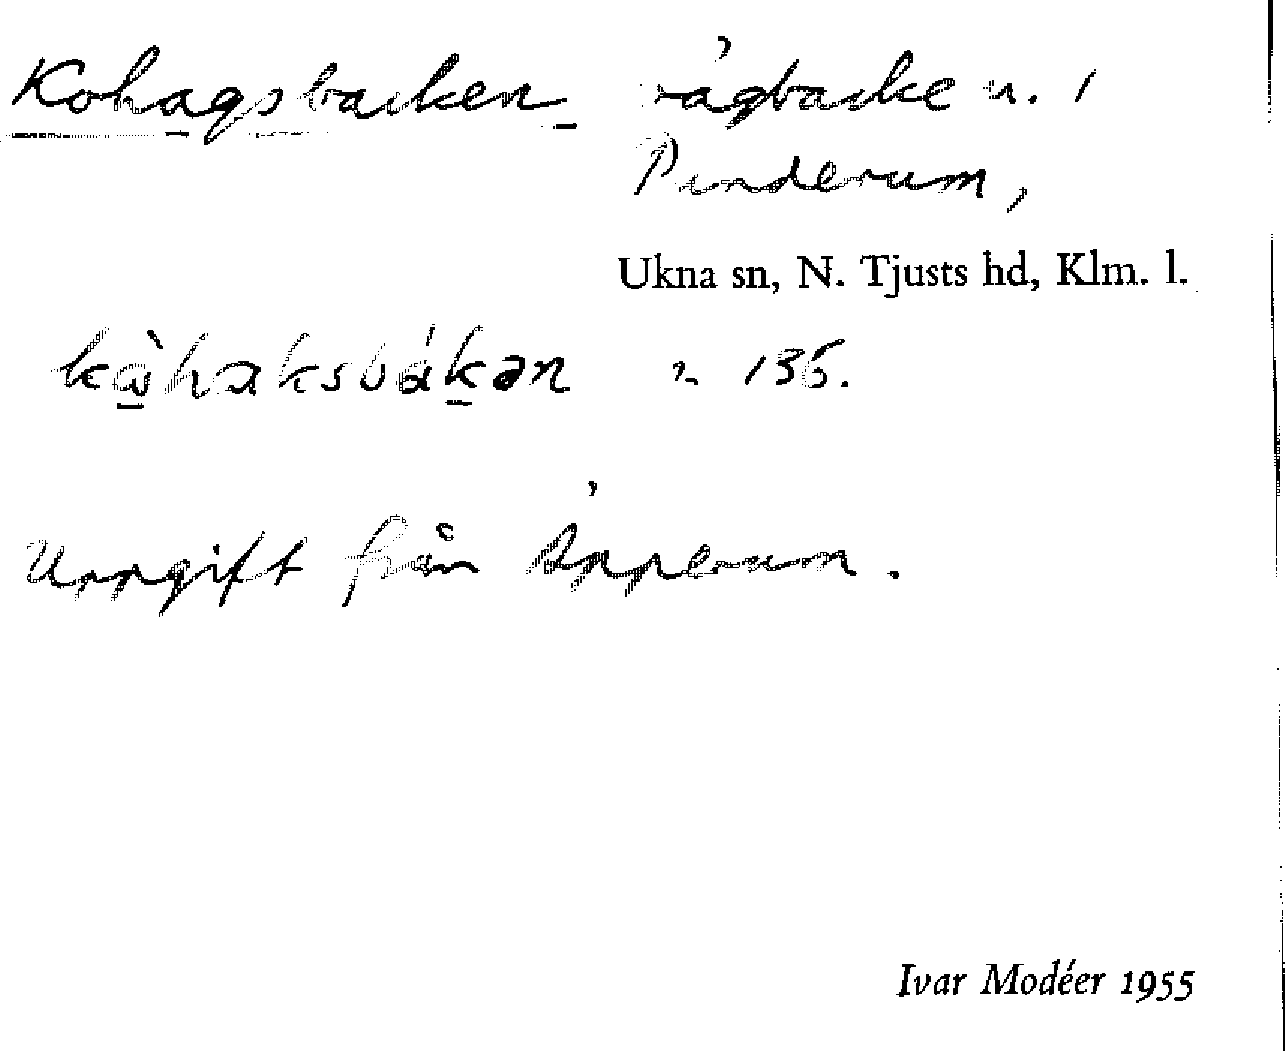 Kohagsbacken vägbacke n. 1
Pinderum,
Ukna sn, N. Tjusts hd, Klm. l.
kòhaksbákən 135.
Uppgift från Äpperum.
Ivar Modéer 1955